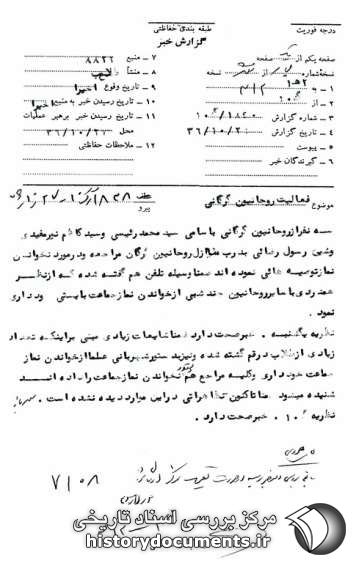 درجه فوریت
طبقه بندی حفاظتی
گزارش خبر
صفحه یکم از یک صفحه
نسخه شماره از نسخه
۱ - به ۳۱۲
۲ - از
۳ - شماره گزارش
۴ - تاریخ گزارش ۳۶/۱۰/۲۰
۵ - پیوست
۶ - گیرندگان خبر
۷ - منبع ۸۸۲۶
۸ - منشأ
۹ - تاریخ وقوع اخیرا
۱۰ - تاریخ رسیدن خبر به منبع اخیرا
۱۱ - تاریخ رسیدن خبر برهبر عملیات
محل ۳۶/۱۰/۲۷
۱۲ - ملاحظات حفاظتی
موضوع فعالیت روحانیون گرگانی
پیرو
سه نفر از روحانیون گرگانی باسامی سید محمد رئیسی وسید کاظم میرمفیدی
وشیخ رسول رضائی بدرب منازل روحانیون گرگان مراجعه ودرمورد نخواندن
نمازتوصیه هائی نموده اند ضمنا وسیله تلفن هم گفته شده که ازنظر
همدردی با سایر روحانیون چند شبی ازخواندن نمازجماعت بایستی خودداری
نمود.
نظریه یکشنبه . خبرصحت دارد ضمنا شایعات زیادی مبنی براینکه تعداد
زیادی ازطلاب درقم کشته شده ونیزبدستورشهربانی علما ازخواندن نماز
جماعت خودداری وکلیه مراجع هم دستور نخواندن نمازجماعت راداده انـــد
شنیده میشود ضمنا تاکنون تظاهراتی دراین مورد دیده نشده است .
نظریه . خبرصحت دارد .
۷/۰۸
مرکز بررسی اسناد تاریخی
historydocuments.ir